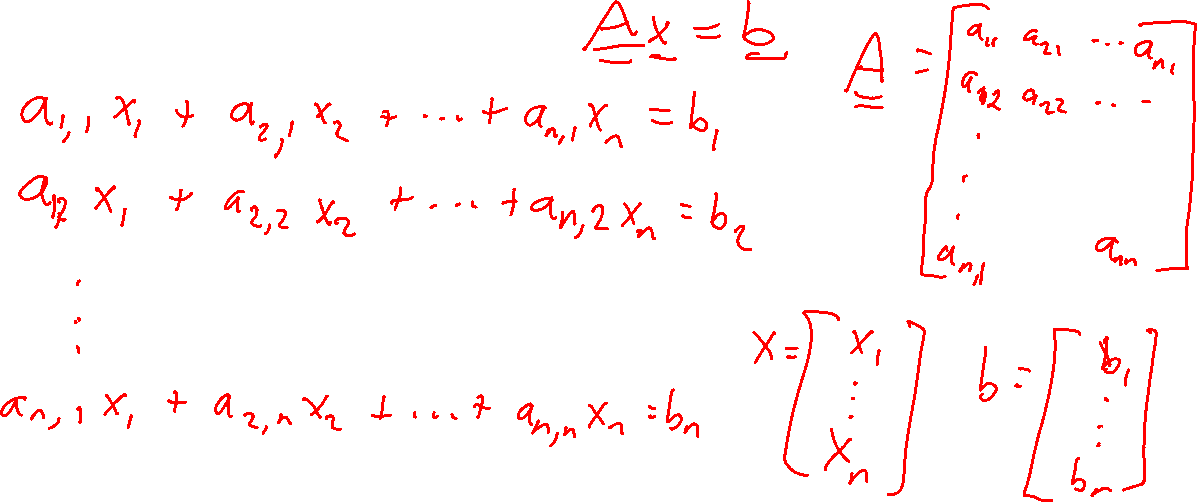 A x = b
a₁,₁ x₁ + a₂,₁ x₂ + ... + aₙ,₁ xₙ = b₁
a₁₂ x₁ + a₂,₂ x₂ + ... + aₙ,₂ xₙ = b₂
⋮
aₙ,₁ x₁ + a₂,ₙ x₂ + ... + aₙ,ₙ xₙ = bₙ
A = [ a₁₁ a₂₁ ... aₙ₁
a₁₂ a₂₂ ...
⋮
aₙ,₁ aₙₙ ]
x = [ x₁
⋮
xₙ ]
b = [ b₁
⋮
bₙ ]